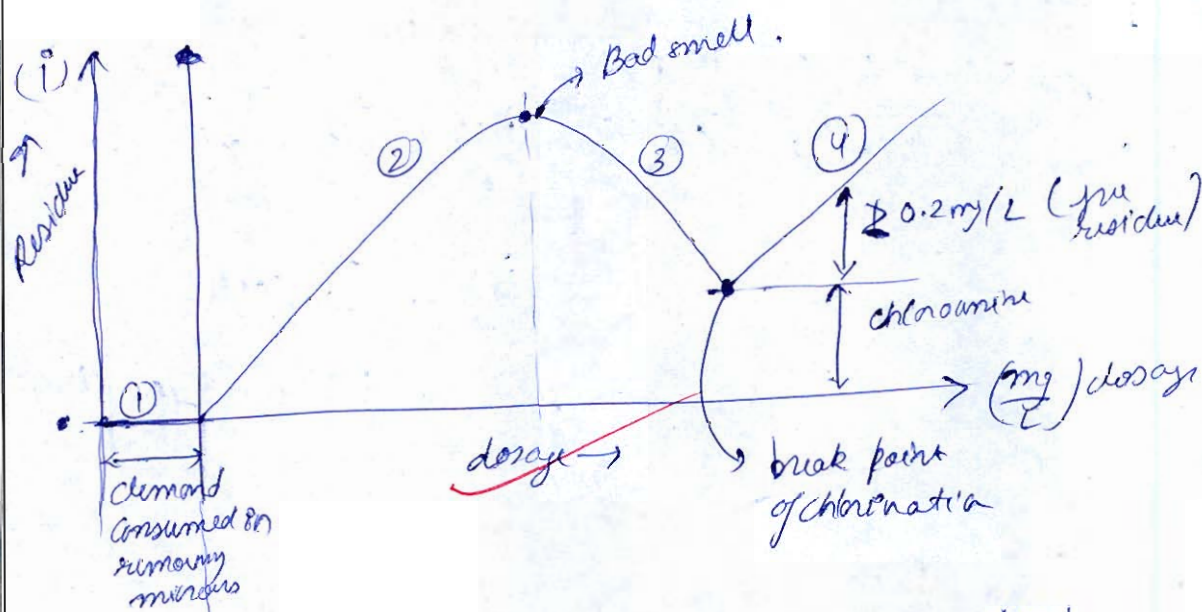 (i)
Residue
Bad smell.
②
③
④
≥ 0.2 mg/L (free
residue)
chloroamine
(mg/L) dosage
①
dosage →
break point
of chlorination
demand
consumed in
removing